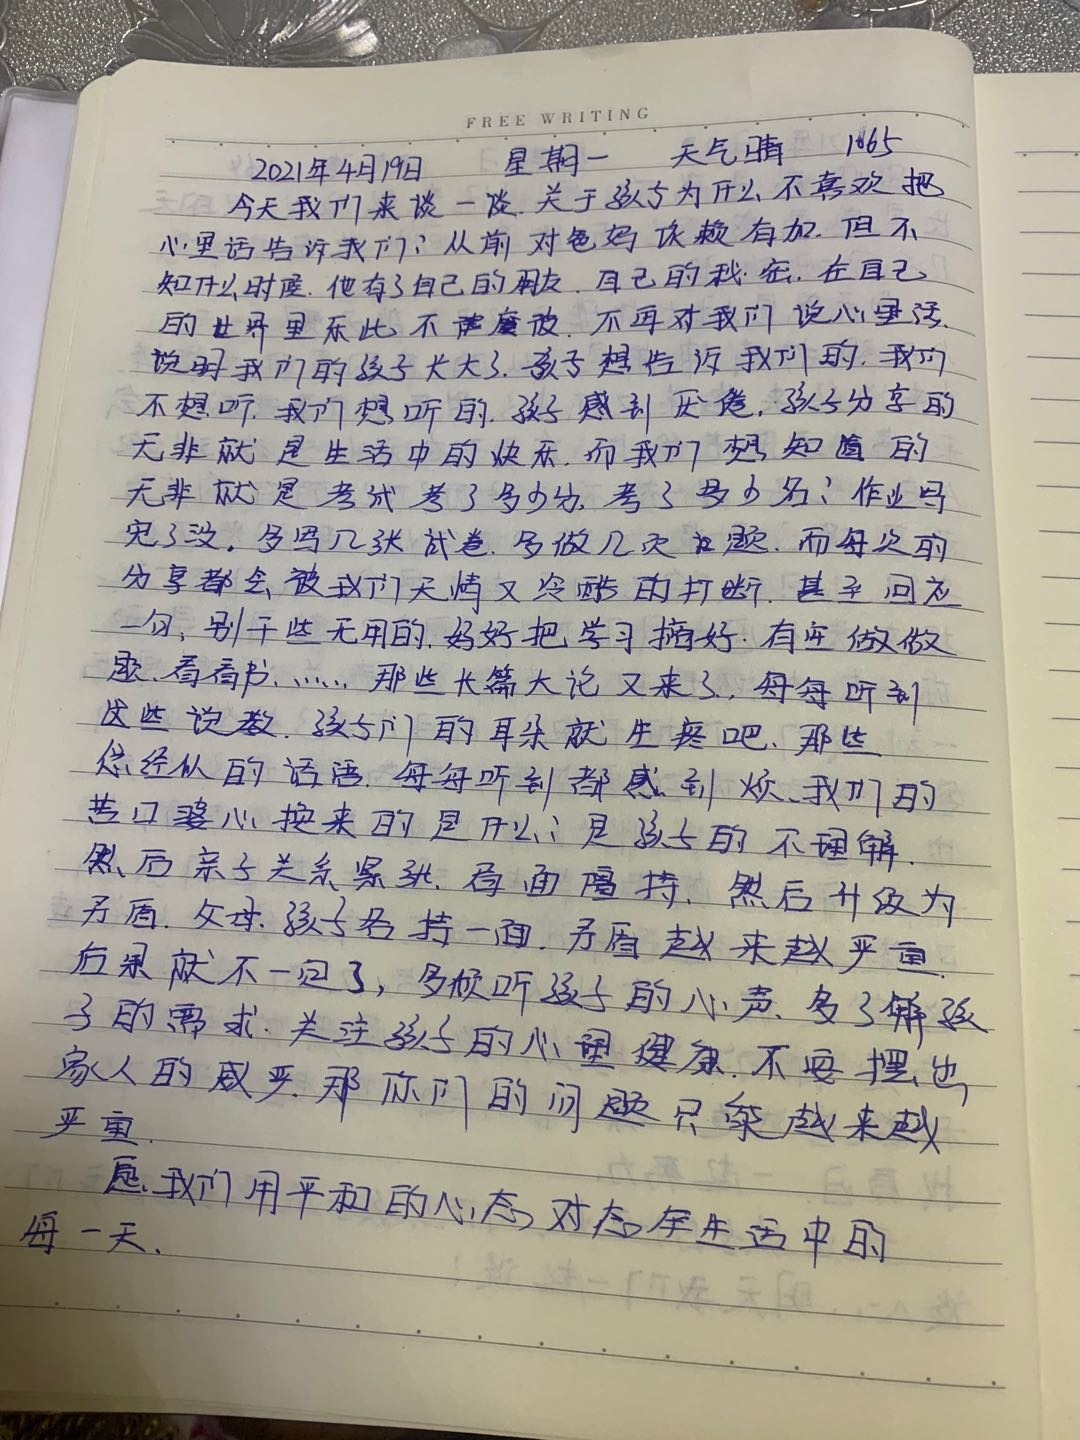 FREE WRITING
2021年4月19日 星期一 天气晴 1665
今天我们来谈一谈.关于孩子为什么不喜欢把
心里话告诉我们?从前对爸妈依赖有加.但不
知什么时候.他有了自己的朋友.自己的秘密.在自己
的世界里乐此不疲.不再对我们说心里话.
说明我们的孩子长大了.孩子想告诉我们的.我们
不想听.我们想听的.孩子感到厌倦.孩子分享的
无非就是生活中的快乐.而我们想知道的
无非就是考试考了多少分.考了多少名?作业写
完了没。多写几张试卷.多做几次习题.而每次的
分享都会被我们无情又冷酷的打断.甚至回应
一句、别干些无用的.好好把学习搞好.有空做做
题.看看书......那些长篇大论又来了,每每听到
这些说教.孩子们的耳朵就生疼吧、那些
念经似的话语.每每听到都感到烦、我们的
苦口婆心换来的是什么?是孩子的不理解.
然后亲子关系紧张.有面僵持.然后升级为
矛盾.父母.孩子各持一面.矛盾越来越严重.
后果就不一回了,多倾听孩子的心声、多了解孩
子的需求.关注孩子的心理健康.不要摆出
家人的威严.那你们的问题只能越来越
严重.
愿.我们用平和的心态.对态余生活中的
每一天.